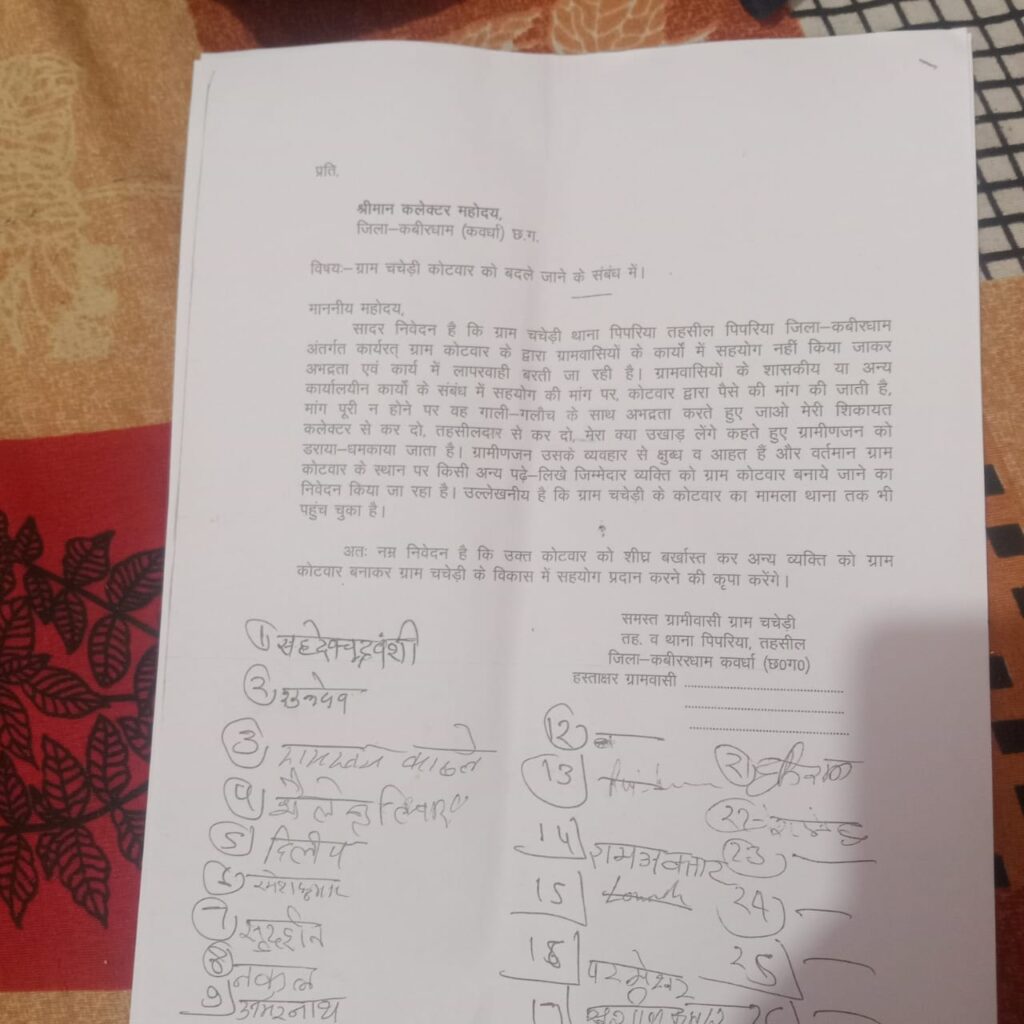 प्रति,
श्रीमान कलेक्टर महोदय,
जिला–कबीरधाम (कवर्धा) छ.ग.
विषयः–ग्राम चचेड़ी कोटवार को बदले जाने के संबंध में।
माननीय महोदय,
सादर निवेदन है कि ग्राम चचेड़ी थाना पिपरिया तहसील पिपरिया जिला–कबीरधाम
अंतर्गत कार्यरत् ग्राम कोटवार के द्वारा ग्रामवासियों के कार्यो में सहयोग नहीं किया जाकर
अभद्रता एवं कार्य में लापरवाही बरती जा रही है। ग्रामवासियों के शासकीय या अन्य
कार्यालयीन कार्यो के संबंध में सहयोग की मांग पर, कोटवार द्वारा पैसे की मांग की जाती है,
मांग पूरी न होने पर वह गाली–गलौच के साथ अभद्रता करते हुए जाओ मेरी शिकायत
कलेक्टर से कर दो, तहसीलदार से कर दो, मेरा क्या उखाड़ लेंगे कहते हुए ग्रामीणजन को
डराया–धमकाया जाता है। ग्रामीणजन उसके व्यवहार से क्षुब्ध व आहत हैं और वर्तमान ग्राम
कोटवार के स्थान पर किसी अन्य पढ़े–लिखे जिम्मेदार व्यक्ति को ग्राम कोटवार बनाये जाने का
निवेदन किया जा रहा है। उल्लेखनीय है कि ग्राम चचेड़ी के कोटवार का मामला थाना तक भी
पहुंच चुका है।
अतः नम्र निवेदन है कि उक्त कोटवार को शीघ्र बर्खास्त कर अन्य व्यक्ति को ग्राम
कोटवार बनाकर ग्राम चचेड़ी के विकास में सहयोग प्रदान करने की कृपा करेंगे।
समस्त ग्रामीवासी ग्राम चचेड़ी
तह. व थाना पिपरिया, तहसील
जिला–कबीररधाम कवर्धा (छ0ग0)
हस्ताक्षर ग्रामवासी
1
2
3
4
5 दिलीप
6
7 सुदर्शन
8 नकुल
9 अमरनाथ
12
13
14 रामअवतार
15
16 परमेश्वर
17
21
22
23
24
25